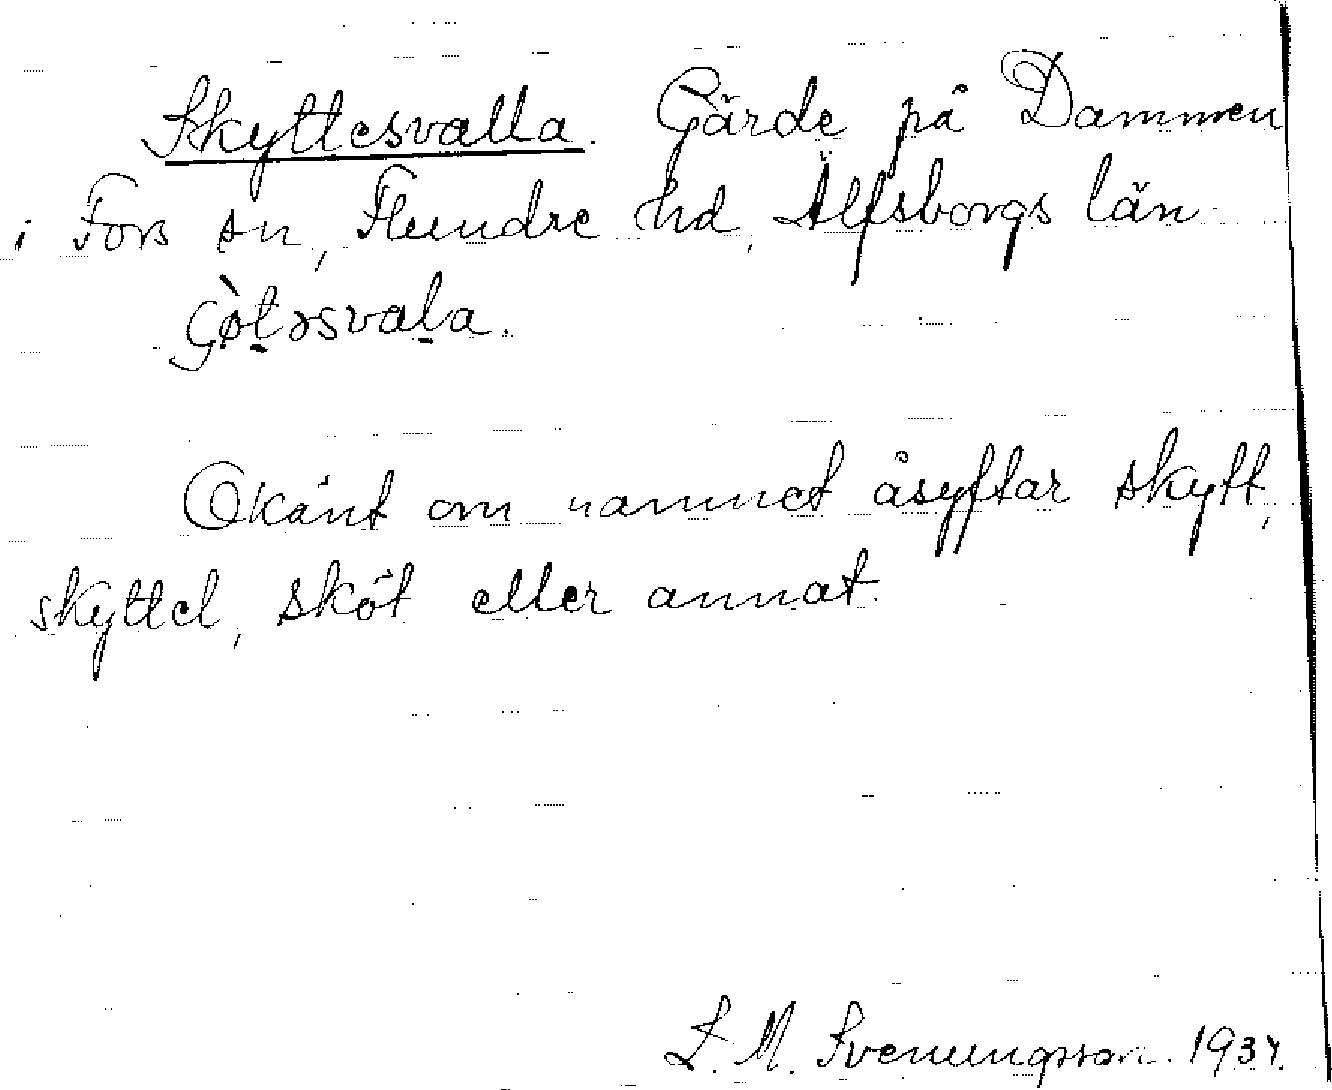 Skyttesvalla. Gärde på Dammen
i Fors sn, Flundre hd, Älfsborgs län
Okänt om namnet åsyftar skytt,
skyttel, sköt eller annat.
S. M. Svenungsson.